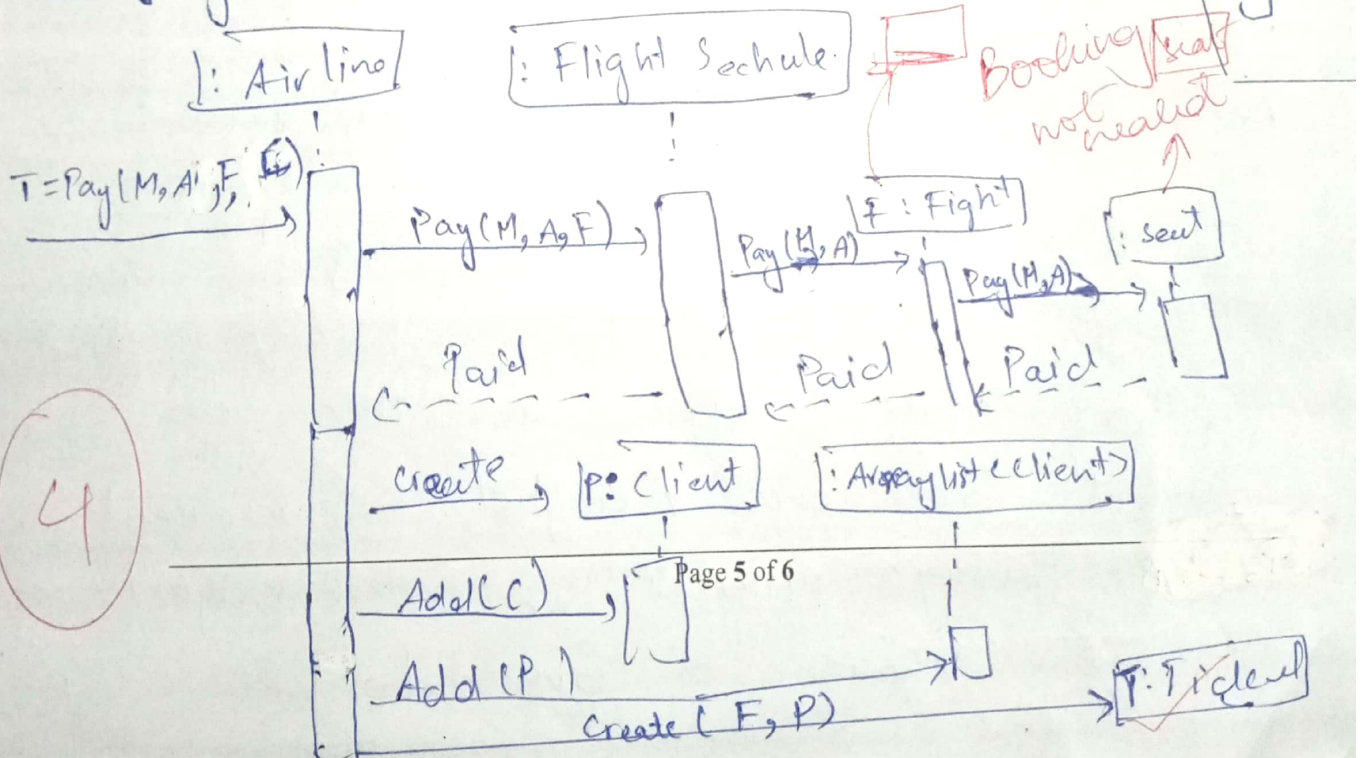 : Air line
: Flight Sechule.
Booking seat
not nealed
T=Pay(M, A, F,
Pay(M, A, F)
Pay(M, A)
F : Fight
: seat
Pay(M, A)
Paid
Paid
Paid
4
create
P: Client
: Arraylist<Client>
Page 5 of 6
Add(C)
Add(P)
Create(F, P)